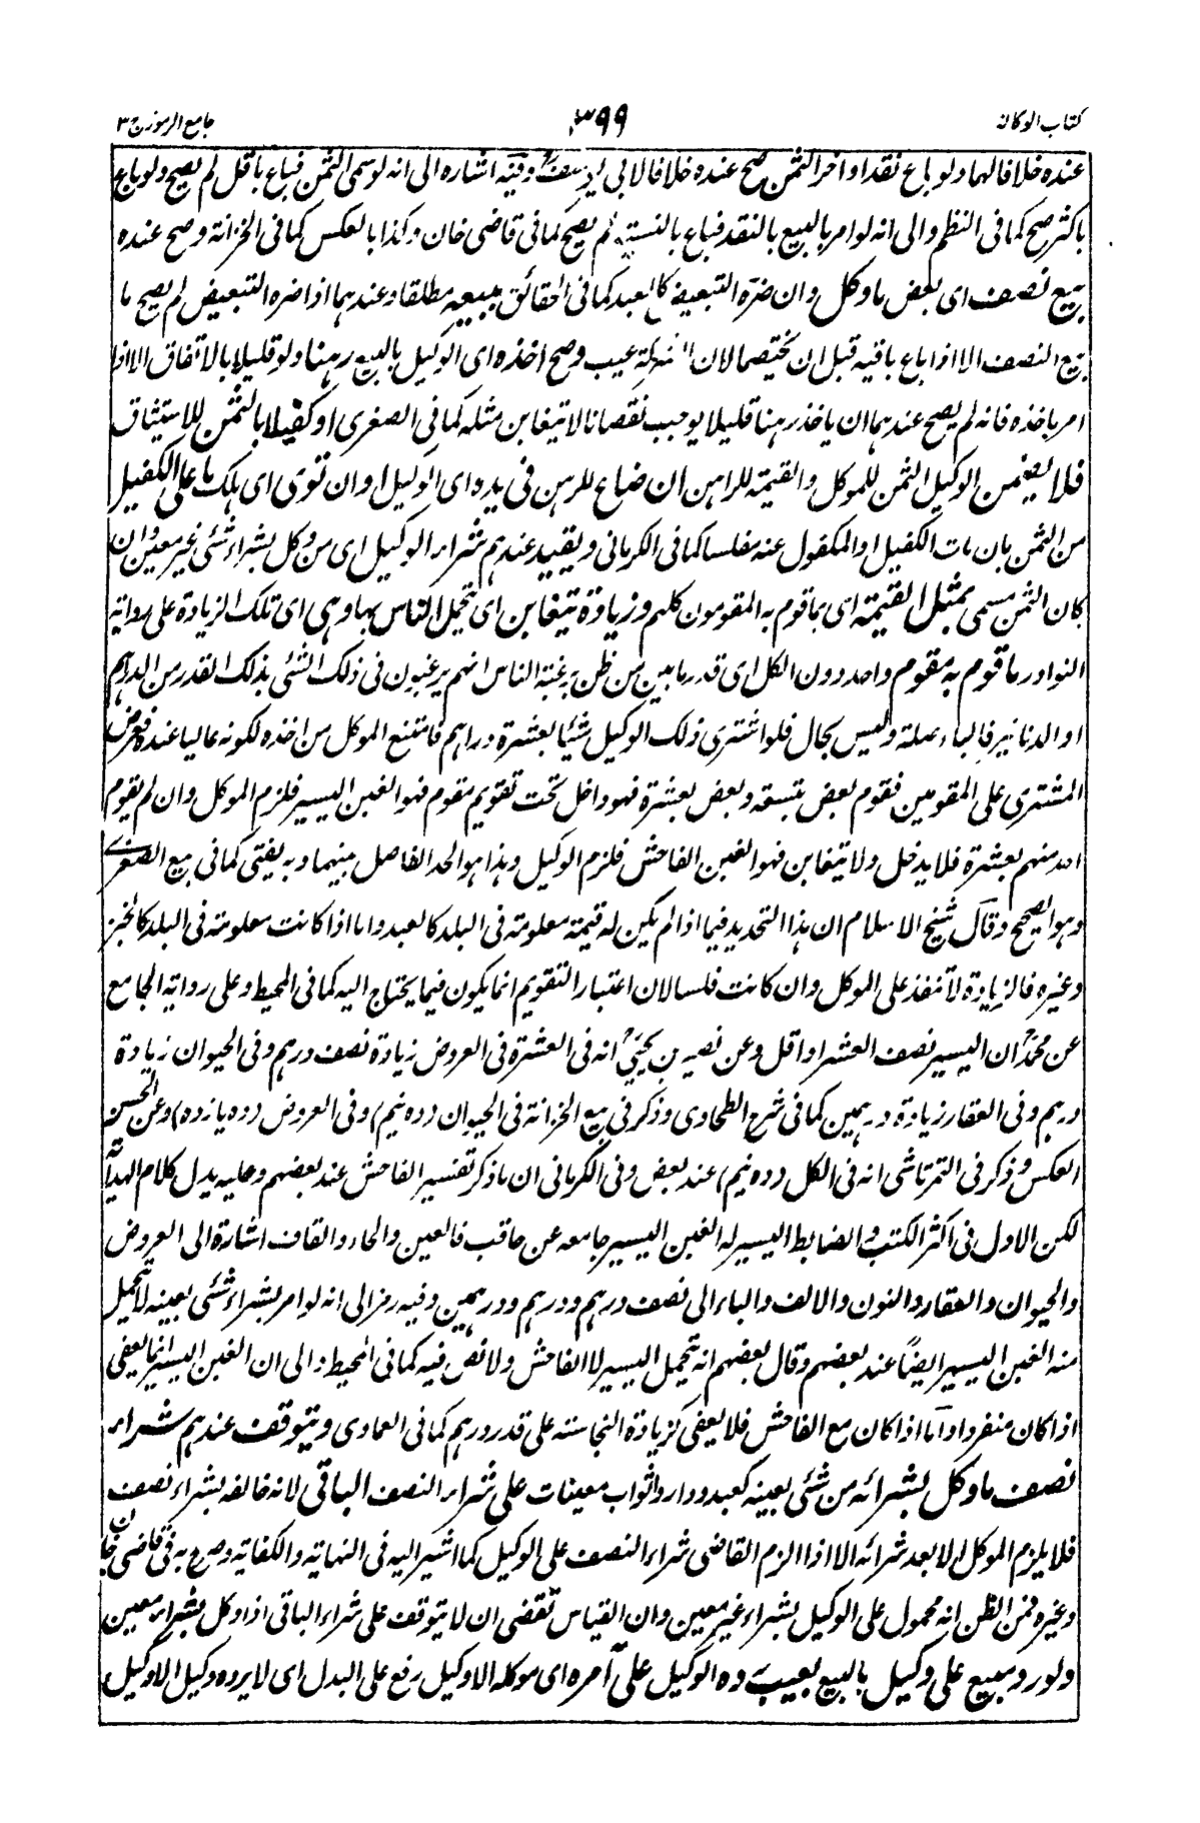 كتاب الوكالة
٣٩٩
جامع الرموز ج ٣
عنده خلافا لهما ولو باع نقدا واخر الثمن صح عنده خلافا لابى يوسف وفيه اشارة الى انه لو سمى الثمن فباع باقل لم يصح ولو باع
باكثر صح كما فى النظم والى انه لو امر بالبيع بالنقد فباع بالنسيئة لم يصح كما فى قاضى خان وكذا بالعكس كما فى الخزانة وصح عنده
بيع نصف اى بعض ما وكل وان ضره التبعيض كالعبد كما فى الحقائق ببيعه مطلقا وعندهما اذا ضره التبعيض لم يصح ما
بيع النصف الا اذا باع باقيه قبل ان يختصما لان الشركة عيب وصح اخذه اى الوكيل بالبيع رهنا ولو قليلا بالاتفاق الا اذا
امر باخذه فانه لم يصح عندهما ان ياخذ رهنا قليلا يوجب نقصانا لا يتغابن مثله كما فى الصغرى او كفيلا بالثمن للاستيثاق
فلا يضمن الوكيل الثمن للموكل والقيمة للراهن ان ضاع للرهن فى يده اى الوكيل او ان توى اى هلك ما على الكفيل
من الثمن بان مات الكفيل او المكفول عنه مفلسا كما فى الكرمانى ويقيد عندهم شراء الوكيل اى من وكل بشراء شئى غير معين وان
كان الثمن مسمى بمثل القيمة اى بما قوم به المقومون كلهم وزيادة يتغابن اى يتحمل الناس بها وهى اى تلك الزيادة على رواية
النوادر ما قوم به مقوم واحد دون الكل اى قدر ما بين من ظن برغبة الناس انهم يرغبون فى ذلك الشئى بذلك القدر من الدراهم
او الدنانير فالباء صلة وليس بحال فلو اشترى ذلك الوكيل شيئا بعشرة دراهم فامتنع الموكل من اخذه لكونه غاليا عنده فعرض
المشترى على المقومين فقوم بعض بتسعة وبعض بعشرة فهو داخل تحت تقويم مقوم فهو الغبن اليسير فلزم الموكل وان لم يقوم
احد منهم بعشرة فلا يدخل ولا يتغابن فهو الغبن الفاحش فلزم الوكيل وهذا هو الحد الفاصل بينهما وبه يفتى كما فى بيع الصغرے
وهو الصحيح وقال شيخ الاسلام ان هذا التحديد فيما اذا لم يكن له قيمة معلومة فى البلد كالعبد واما اذا كانت معلومة فى البلد كالخبز
وغيره فالزيادة لا تنفذ على الموكل وان كانت فلسا لان اعتبار التقويم انما يكون فيما يحتاج اليه كما فى المحيط وعلى رواية الجامع
عن محمدؒ ان اليسير نصف العشر او اقل وعن نصير بن يحيىؒ انه فى العشرة فى العروض زيادة نصف درهم وفى الحيوان زيادة
درهم وفى العقار زيادة درهمين كما فى شرح الطحاوى وذكر فى بيع الخزانة فى الحيوان (ده نيم) وفى العروض (ده يازده) وعن الحسن
العكس وذكر فى التمرتاشى انه فى الكل (ده نيم) عند بعض وفى الكرمانى ان ما ذكر تفسير الفاحش عند بعضهم وعليه يدل كلام الهداية
لكن الاول فى اكثر الكتب والضابط اليسير له الغبن اليسير جامعه عن حاقب فالعين والحاء والقاف اشارة الى العروض
والحيوان والعقار والنون والالف والباء الى نصف درهم ودرهم ودرهمين وفيه رمز الى انه لو امر بشراء شئى بعينه لا يتحمل
منه الغبن اليسير ايضاً عند بعضهم وقال بعضهم انه يتحمل اليسير لا الفاحش ولا نص فيه كما فى المحيط والى ان الغبن اليسير انما يعفى
اذا كان منفردا واما اذا كان مع الفاحش فلا يعفى كزيادة النجاسة على قدر درهم كما فى العمادى ويتوقف عندهم شراء
نصف ما وكل بشرائه من شئى بعينه كعبد ودار واثواب معينات على شراء النصف الباقى لانه خالفه بشراء نصف
فلا يلزم الموكل الا بعد شرائه الا اذا الزم القاضى شراء النصف على الوكيل كما اشير اليه فى النهاية والكفاية وصرح به فى قاضى خان
وغيره فمن الظن انه محمول على الوكيل بشراء غير معين وان القياس تقضى ان لا يتوقف على شراء الباقى اذا وكل بشراء معين
ولو رد مبيع على وكيل بالبيع بعيب رده الوكيل على آمره اى موكله الا وكيل رفع على البدل اى لا يرده وكيل الا وكيل